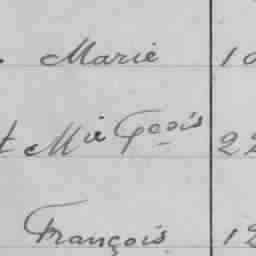 Marie 10
t Mie Fçois 22
François 12